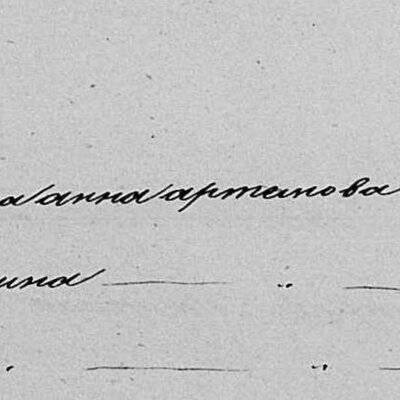 а анна артемова
ина — „ —
— „ —